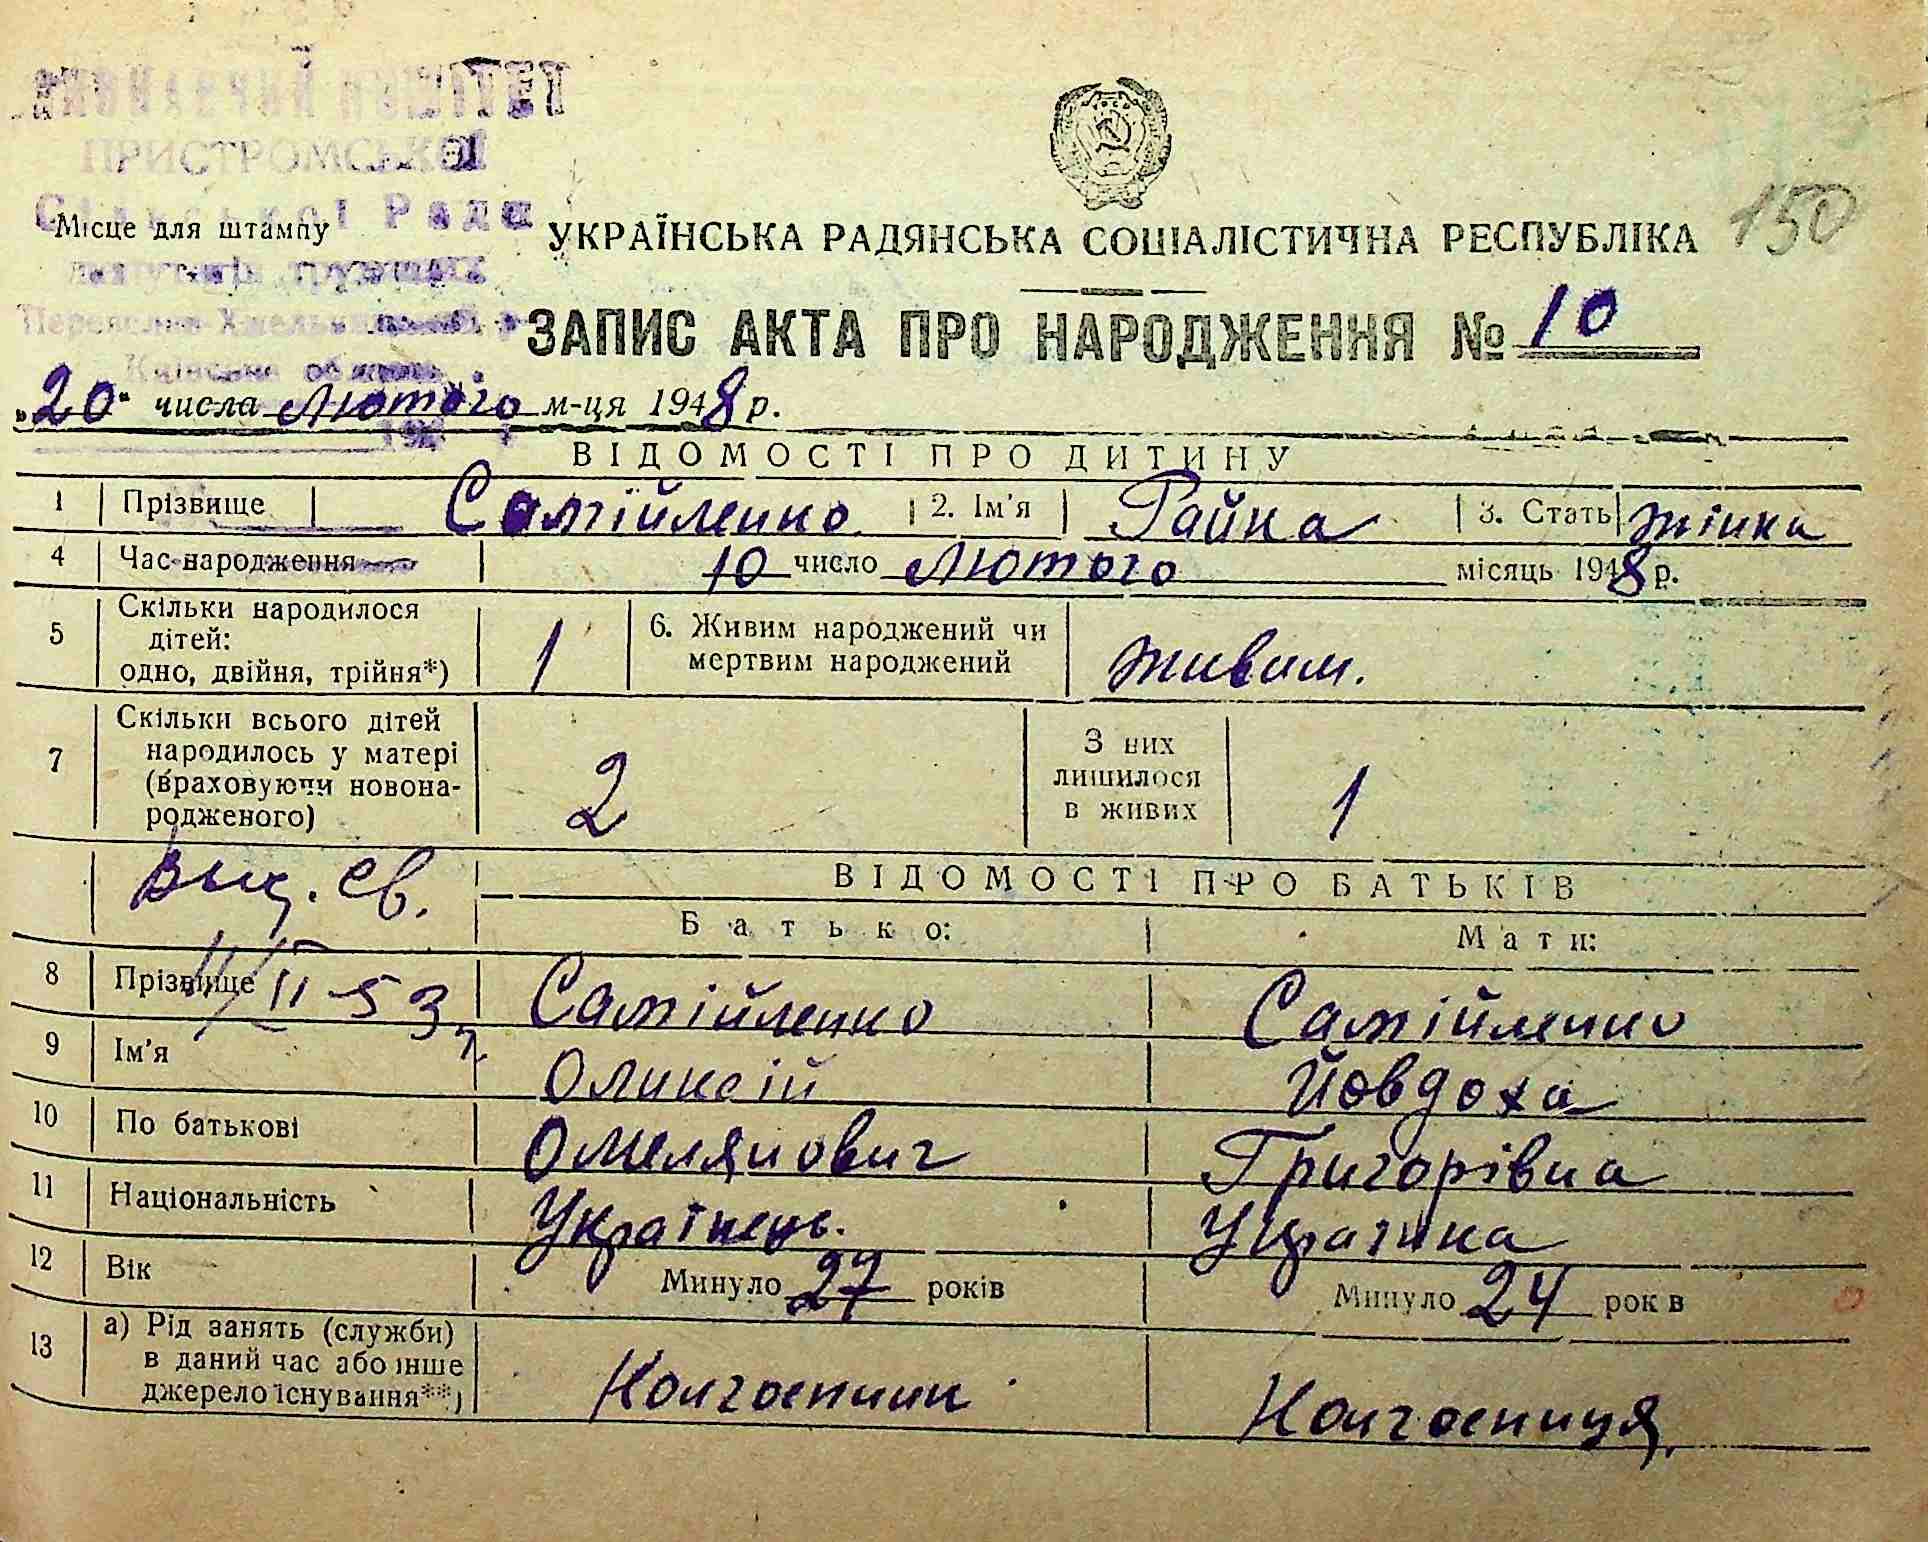 ВИКОНАВЧИЙ КОМІТЕТ
ПРИСТРОМСЬКОЇ
Сільської Ради
Місце для штампу
депутатів трудящих
Переяслав-Хмельницький р
Київська область
УКРАЇНСЬКА РАДЯНСЬКА СОЦІАЛІСТИЧНА РЕСПУБЛІКА 150
ЗАПИС АКТА ПРО НАРОДЖЕННЯ № 10
„20“ числа Лютого м-ця 1948 р.
ВІДОМОСТІ ПРО ДИТИНУ
1 Прізвище Самійленко 2. Ім'я Райка 3. Стать жінка
4 Час народження 10 число Лютого місяць 1948 р.
5 Скільки народилося дітей: одно, двійня, трійня*) 1 6. Живим народжений чи мертвим народжений живим.
7 Скільки всього дітей народилось у матері (враховуючи новонародженого) 2 З них лишилося в живих 1
Выд. св.
ВІДОМОСТІ ПРО БАТЬКІВ
Батько: Мати:
8 Прізвище Самійленко Самійленко
53
9 Ім'я Оликсій Йовдоха
10 По батькові Омелянович Григорівна
11 Національність Українець. Українка
12 Вік Минуло 27 років Минуло 24 рок в
13 а) Рід занять (служби) в даний час або інше джерело існування**) Колгоспник Колгоспниця